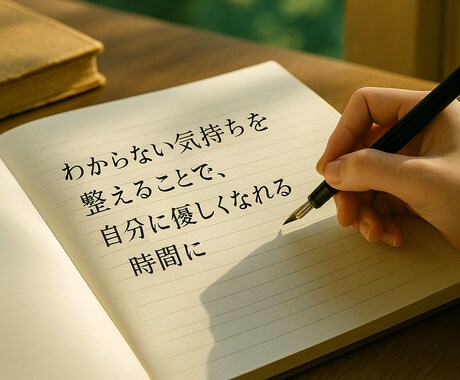 わからない気持ちを
整えることで、
自分に優しくなれる
時間に